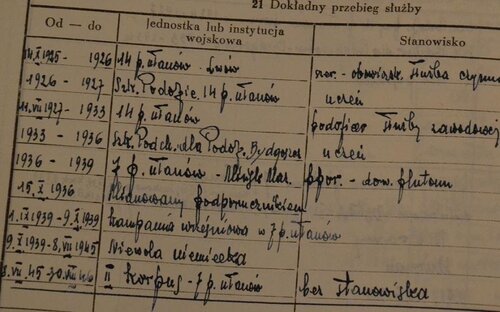 21 Dokładny przebieg służby
Od — do Jednostka lub instytucja wojskowa Stanowisko
14.X.1925 - 1926 14 p. ułanów - Lwów obowiązk. służba czynna
1926 - 1927 Szk. Podofic. 14 p. ułanów uczeń
11.VII.1927 - 1933 14 p. ułanów podoficer służby zawodowej
1933 - 1936 Szk. Podch. dla Podof. Bydgoszcz uczeń
1936 - 1939 7 p. ułanów - Mińsk Maz. ppor. - dow. plutonu
15.X 1936 Mianowany podporucznikiem
1.IX 1939 - 9.X 1939 Kampania wrześniowa w 7 p. ułanów
9.X 1939 - 8.VII 1945 Niewola niemiecka
45 - 46 II Korpus - 7 p. ułanów bez stanowiska